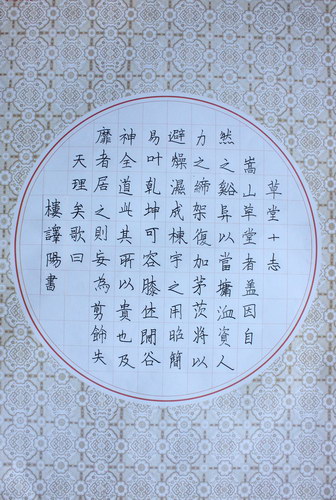 草堂十志
嵩山草堂者盖因自
然之谿阜以當墉洫資人
力之締架復加茅茨將以
避燥濕成棟宇之用昭簡
易叶乾坤可容膝休閑谷
神全道此其所以貴也及
靡者居之則妄為剪飾失
天理矣歌曰
樓譯陽書